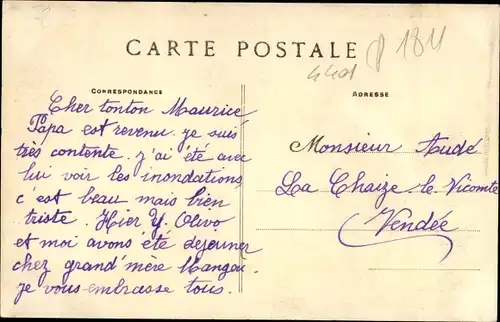 CARTE POSTALE
184
CORRESPONDANCE
ADRESSE
Cher tonton Maurice
Papa est revenu. je suis
très contente. j'ai été avec
lui voir les inondations
c'est beau mais bien
triste. Hier Y. Olivo
et moi avons été dejeuner
chez grand'mère Mangou.
je vous embrasse tous.
Monsieur Audé
La Chaize-le-Vicomte
Vendée